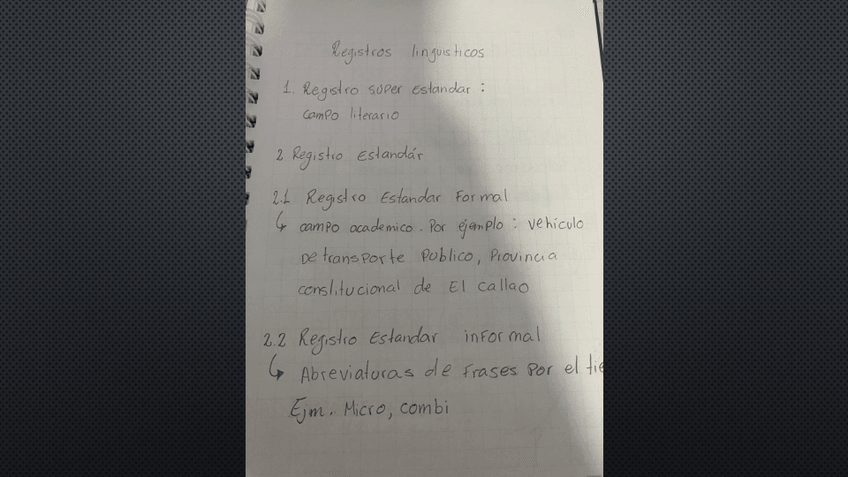 Registros linguisticos
1. Registro super estandar :
campo literario
2 Registro Estandár
2.1 Registro Estandar Formal
↳ campo academico. Por ejemplo : vehiculo
De transporte Publico, Provincia
constitucional de El callao
2.2 Registro Estandar informal
↳ Abreviaturas de Frases Por el
Ejm. Micro, combi